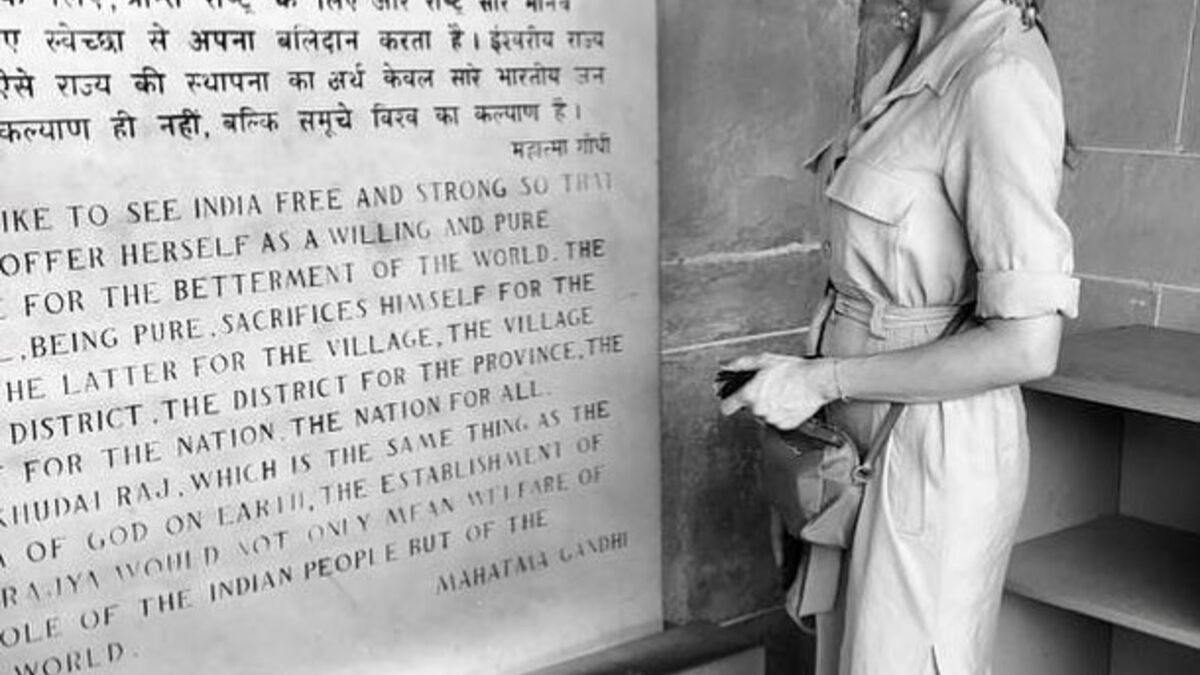 स्वेच्छा से अपना बलिदान करता है। ईश्वरीय राज्य
ऐसे राज्य की स्थापना का अर्थ केवल सारे भारतीय जन
कल्याण ही नहीं, बल्कि समूचे विश्व का कल्याण है।
महात्मा गाँधी
IKE TO SEE INDIA FREE AND STRONG SO THAT
OFFER HERSELF AS A WILLING AND PURE
FOR THE BETTERMENT OF THE WORLD. THE
, BEING PURE, SACRIFICES HIMSELF FOR THE
HE LATTER FOR THE VILLAGE, THE VILLAGE
DISTRICT, THE DISTRICT FOR THE PROVINCE, THE
FOR THE NATION, THE NATION FOR ALL.
KHUDAI RAJ, WHICH IS THE SAME THING AS THE
OF GOD ON EARTH, THE ESTABLISHMENT OF
RAJYA WOULD NOT ONLY MEAN WELFARE OF
OLE OF THE INDIAN PEOPLE BUT OF THE
WORLD.
MAHATMA GANDHI